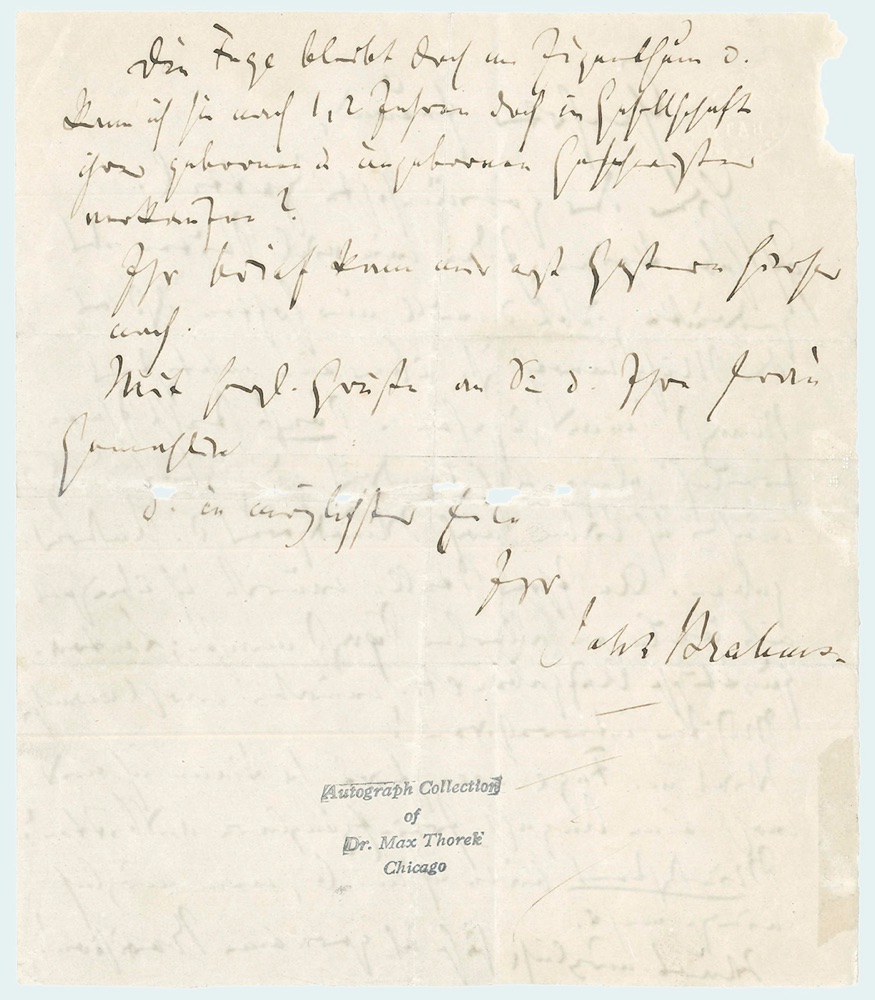 Die Fuge bleibt doch m. Eigenthum u.
kann ich sie nach 1, 2 Jahren doch in Gesellschaft
ihrer geborenen u. ungeborenen Geschwister
verkaufen?
Ihr Brief kam mir erst gestern hierher
nach.
Mit herzl. Grüßen an Sie u. Ihre Frau
Gemahlin
u. in möglichster Eile
Ihr
Johs Brahms.
Autograph Collection
of
Dr. Max Thorek
Chicago